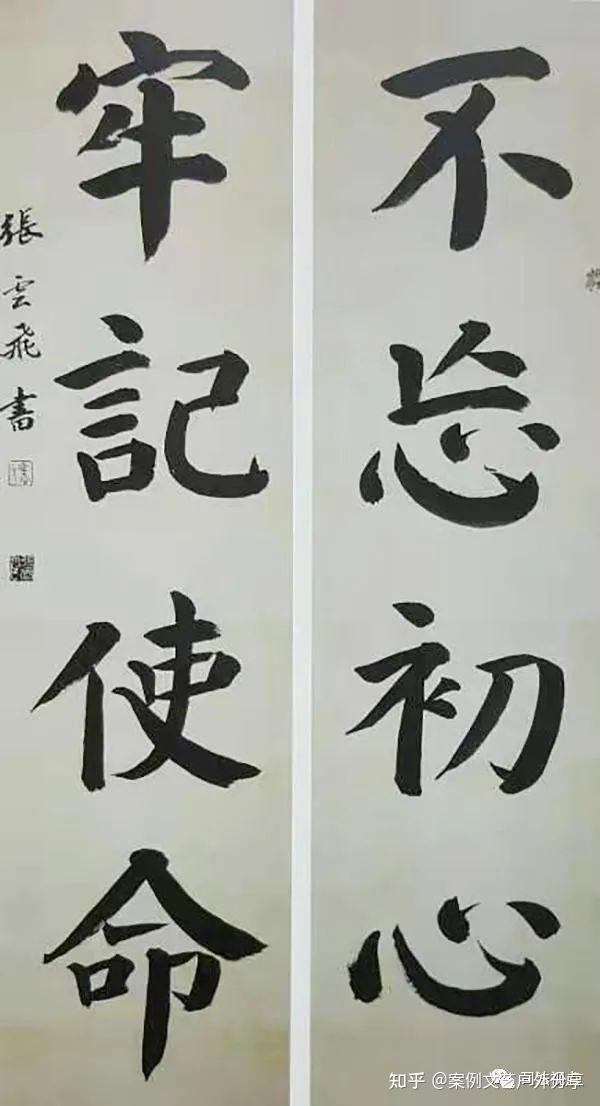 不忘初心
牢記使命
張雲飛書
知乎 @案例文